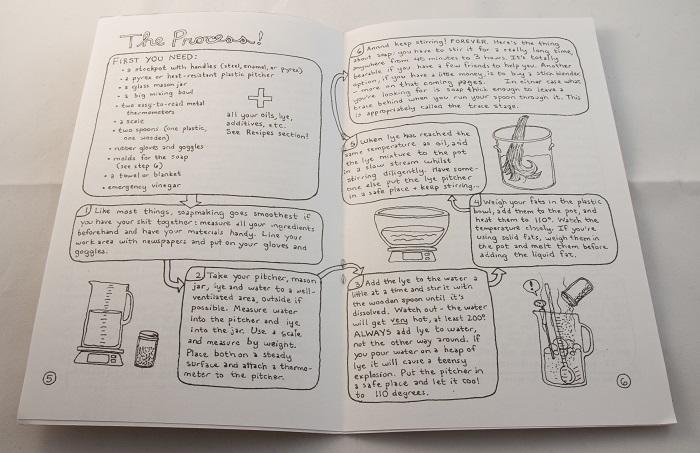 The Process!
FIRST YOU NEED:
• a stockpot with handles (steel, enamel, or pyrex)
• a pyrex or heat-resistant plastic pitcher
• a glass mason jar
• a big mixing bowl
• two easy-to-read metal
thermometers
• a scale
• two spoons (one plastic,
one wooden)
• rubber gloves and goggles
• molds for the soap
(see step 6)
• a towel or blanket
• emergency vinegar
+
all your oils, lye,
additives, etc.
See Recipes section!
1 Like most things, soapmaking goes smoothest if
you have your shit together: measure all your ingredients
beforehand and have your materials handy. Line your
work area with newspapers and put on your gloves and
goggles.
2 Take your pitcher, mason
jar, lye and water to a well-
ventilated area, outside if
possible. Measure water
into the pitcher and lye
into the jar. Use a scale
and measure by weight.
Place both on a steady
surface and attach a thermo-
meter to the pitcher.
5
3 Add the lye to the water a
little at a time and stir it with
the wooden spoon until it's
dissolved. Watch out - the water
will get very hot, at least 200°.
ALWAYS add lye to water,
not the other way around. If
you pour water on a heap of
lye it will cause a teensy
explosion. Put the pitcher in
a safe place and let it cool
to 110 degrees.
!
4 Weigh your fats in the plastic
bowl, add them to the pot, and
heat them to 110°. Watch the
temperature closely. If you're
using solid fats, weigh them in
the pot and melt them before
adding the liquid fat.
5 When lye has reached the
same temperature as oil, add
the lye mixture to the pot
in a slow stream whilst
stirring diligently. Have some-
one else put the lye pitcher
in a safe place + keep stirring...
6 Annnd keep stirring! FOREVER. Here's the thing
about soap: you have to stir it for a really long time,
anywhere from 40 minutes to 3 hours. It's totally
bearable if you have a few friends to help you. Another
option, if you have a little money, is to buy a stick blender
- more on that coming pages. In either case what
you're looking for is soap thick enough to leave a
trace behind when you run your spoon through it. This
is appropriately called the trace stage.
6